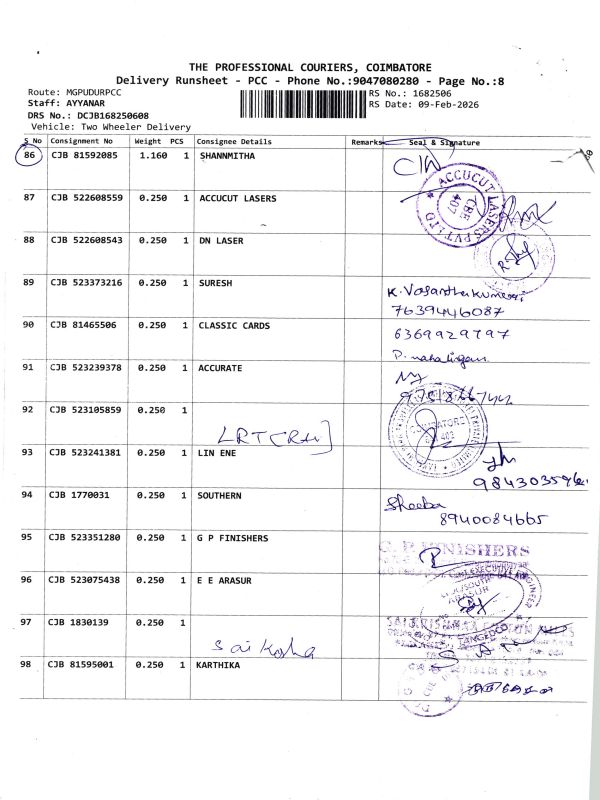 THE PROFESSIONAL COURIERS, COIMBATORE
Delivery Runsheet - PCC - Phone No.:9047080280 - Page No.:8
Route: MGPUDURPCC
Staff: AYYANAR
DRS No.: DCJB168250608
Vehicle: Two Wheeler Delivery
RS No.: 1682506
RS Date: 09-Feb-2026
S No Consignment No Weight PCS Consignee Details Remarks Seal & Signature
86 CJB 81592085 1.160 1 SHANNMITHA
87 CJB 522608559 0.250 1 ACCUCUT LASERS
ACCUCUT LASERS PVT LTD
CBE
407
88 CJB 522608543 0.250 1 DN LASER
89 CJB 523373216 0.250 1 SURESH
K. Vasanthakumari
7639446087
90 CJB 81465506 0.250 1 CLASSIC CARDS
6369929797
91 CJB 523239378 0.250 1 ACCURATE
92 CJB 523105859 0.250 1
LRT
COIMBATORE
93 CJB 523241381 0.250 1 LIN ENE
94 CJB 1770031 0.250 1 SOUTHERN
Sheeba
8940084665
95 CJB 523351280 0.250 1 G P FINISHERS
G. P. FINISHERS
96 CJB 523075438 0.250 1 E E ARASUR
ARASUR
TANGEDCO
97 CJB 1830139 0.250 1
98 CJB 81595001 0.250 1 KARTHIKA